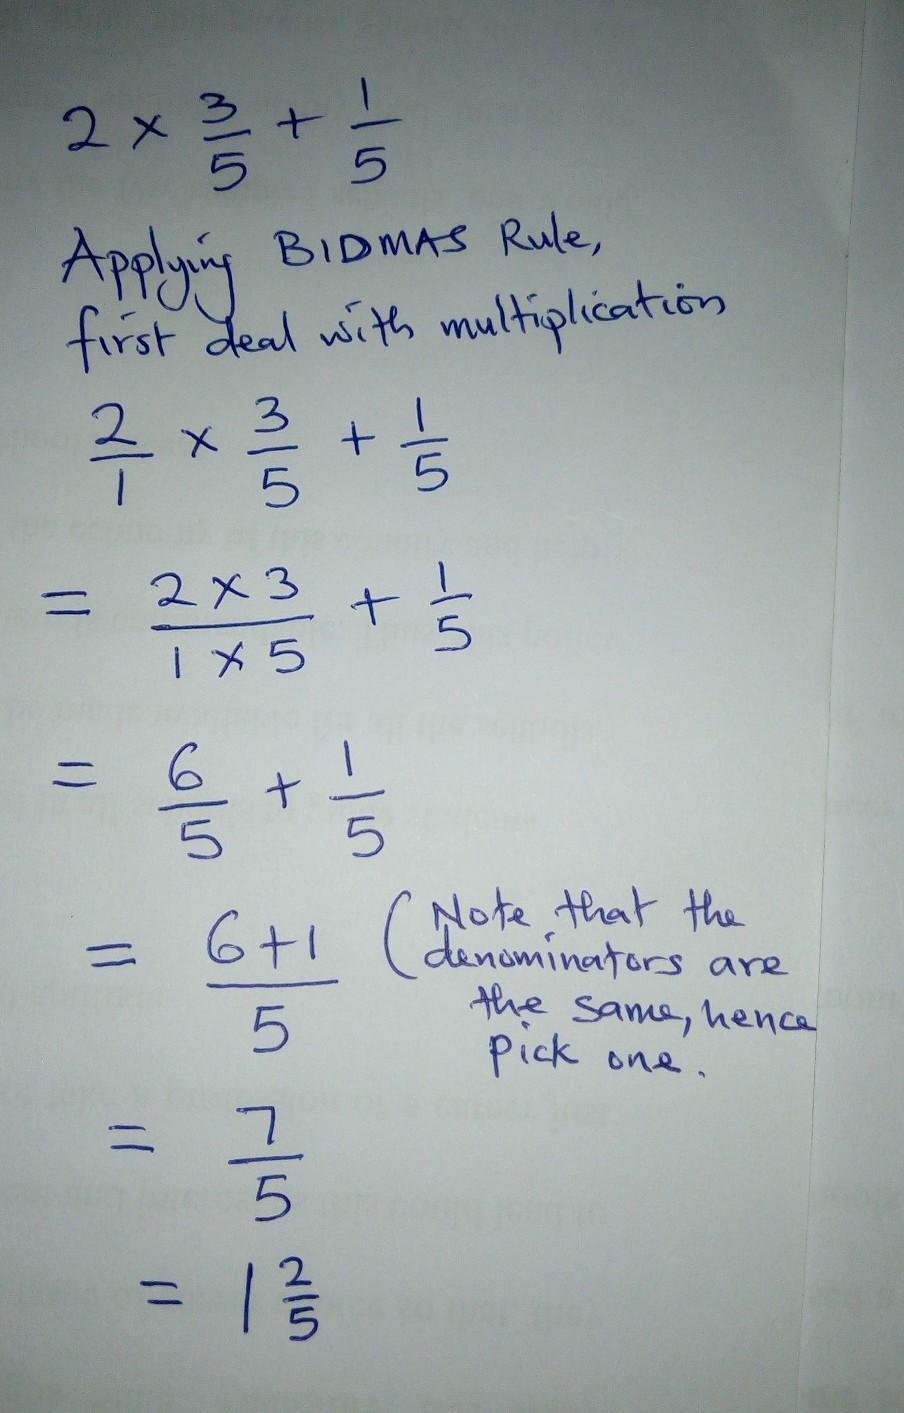 2 × 3/5 + 1/5
Applying BIDMAS Rule,
first deal with multiplication
2/1 × 3/5 + 1/5
= 2 × 3 / 1 × 5 + 1/5
= 6/5 + 1/5
= 6+1 / 5 (Note that the
denominators are
the same, hence
pick one.
= 7/5
= 1 2/5